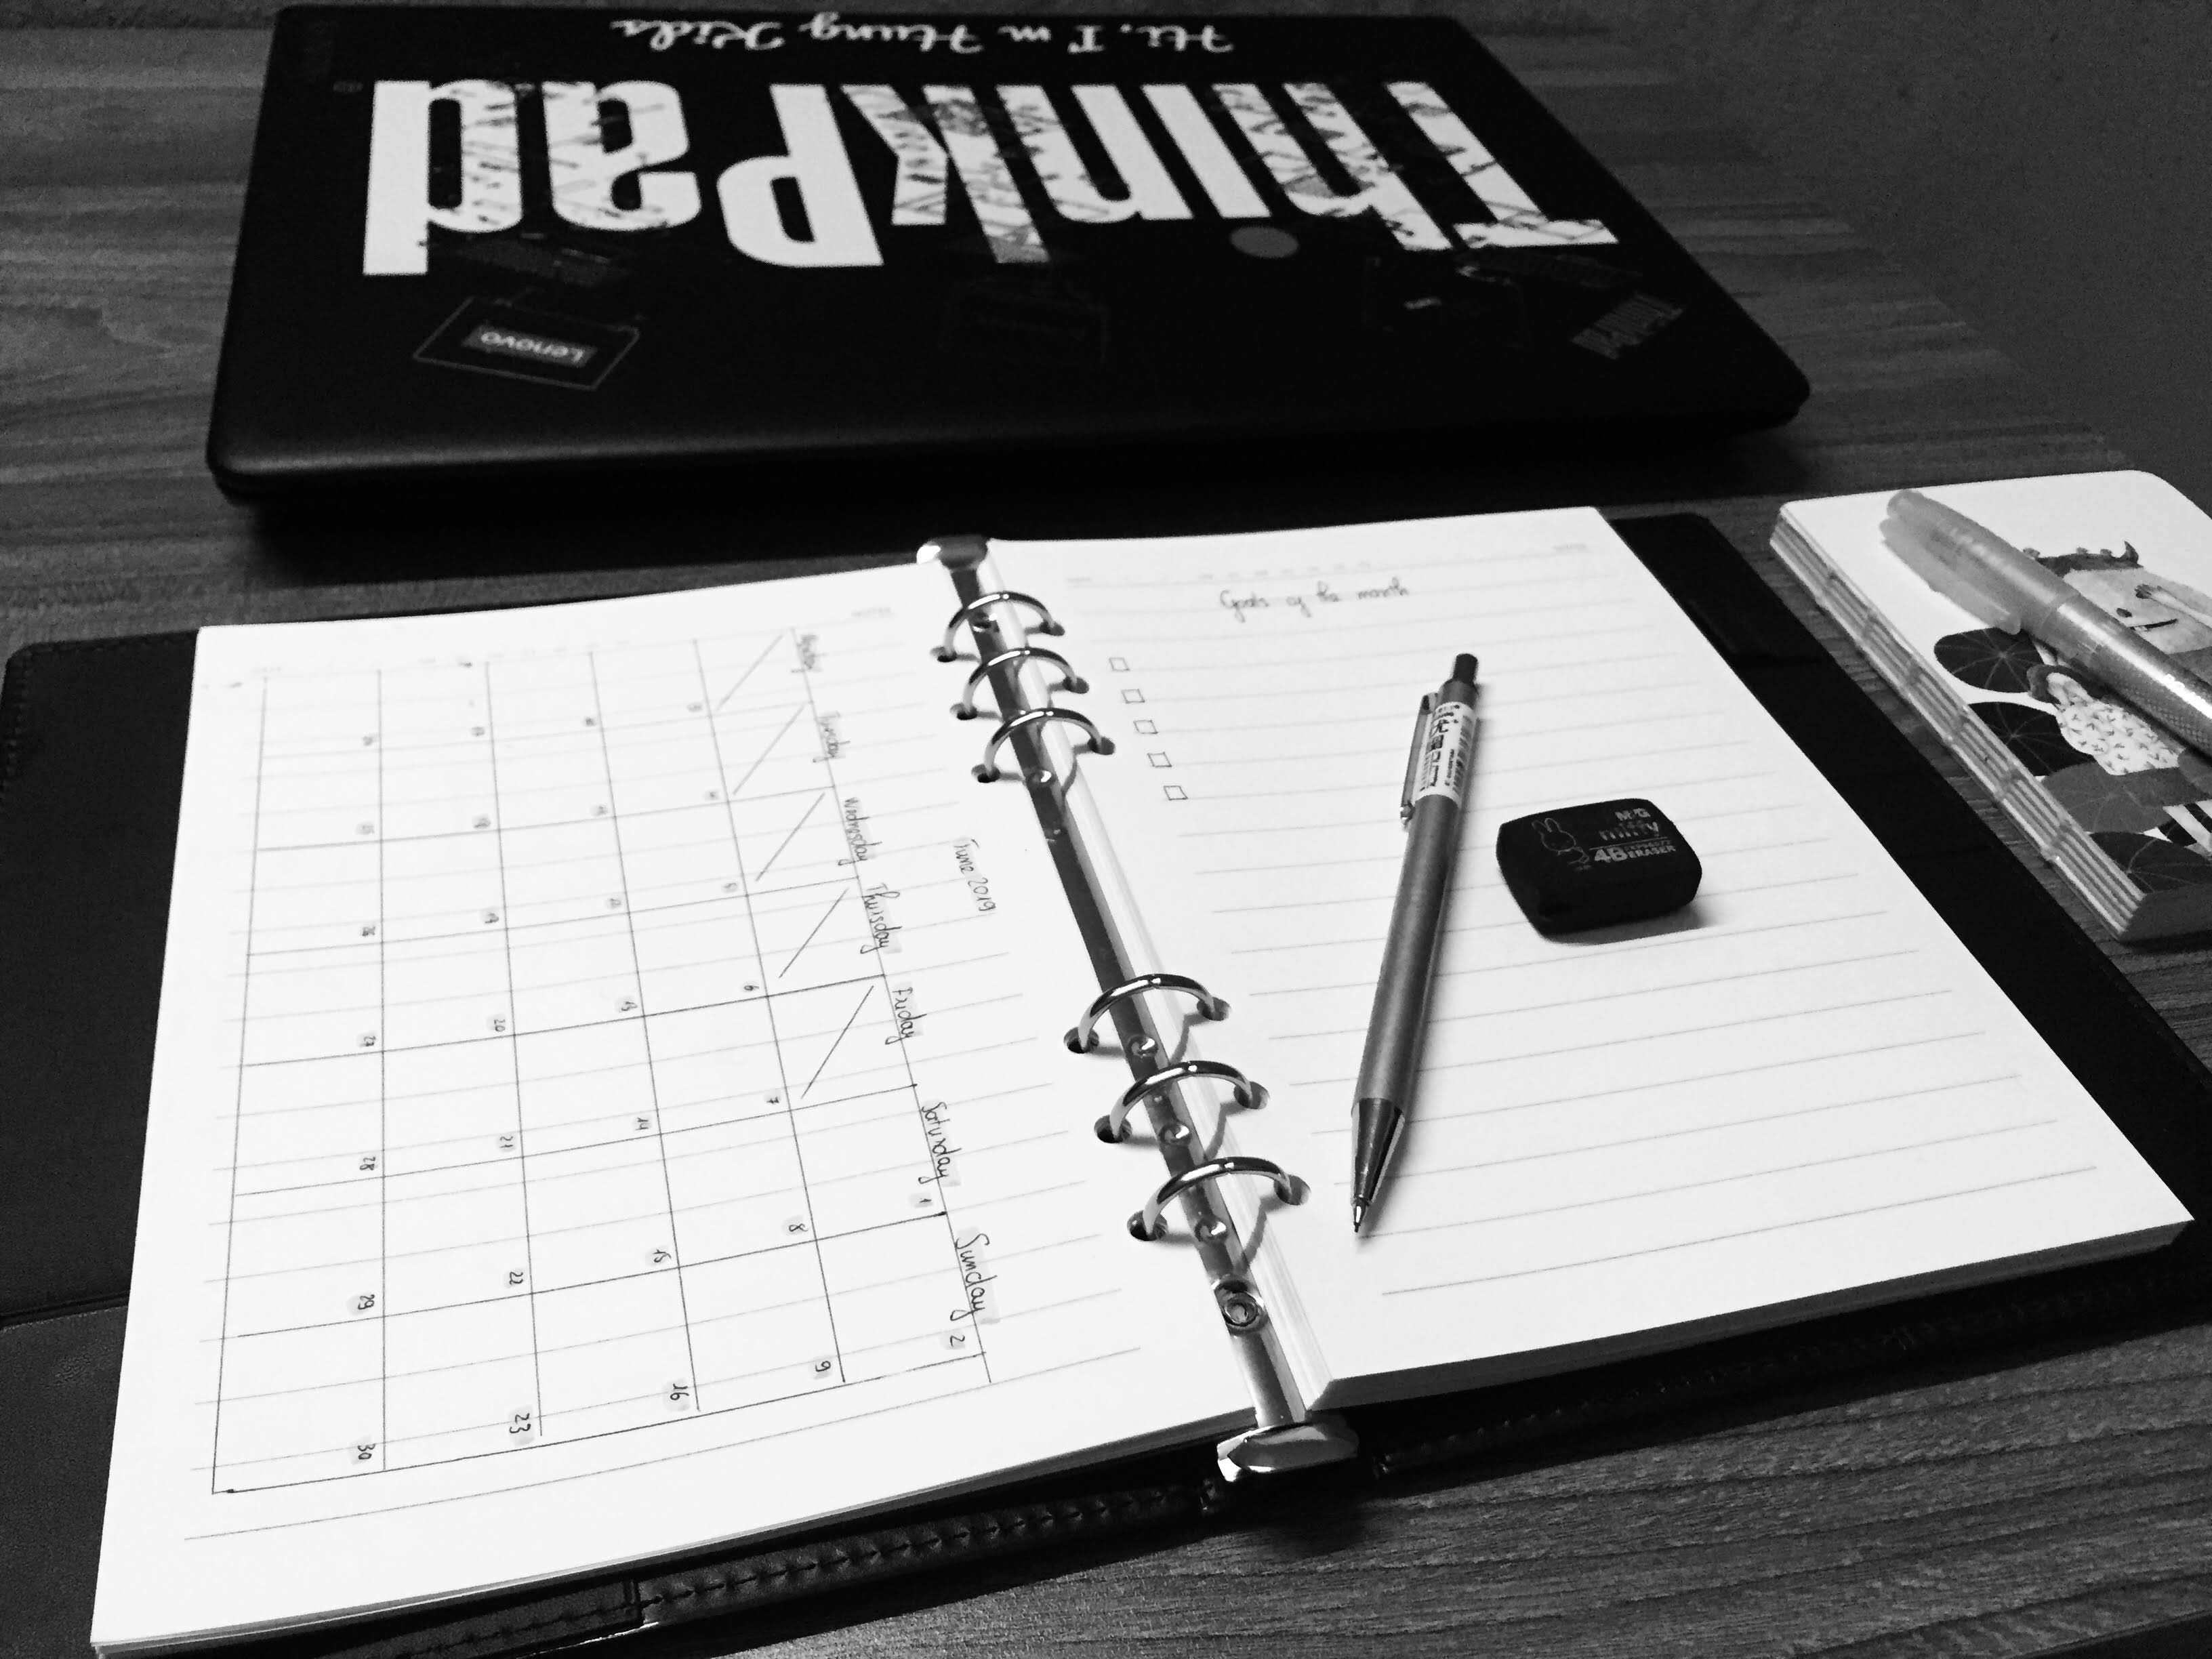 Hi, I'm Hung Kids
ThinkPad
Lenovo
June 2019
Monday Tuesday Wednesday Thursday Friday Saturday Sunday
1 2
3 4 5 6 7 8 9
10 11 12 13 14 15 16
17 18 19 20 21 22 23
24 25 26 27 28 29 30
Goals of the month
M&G
4B ERASER